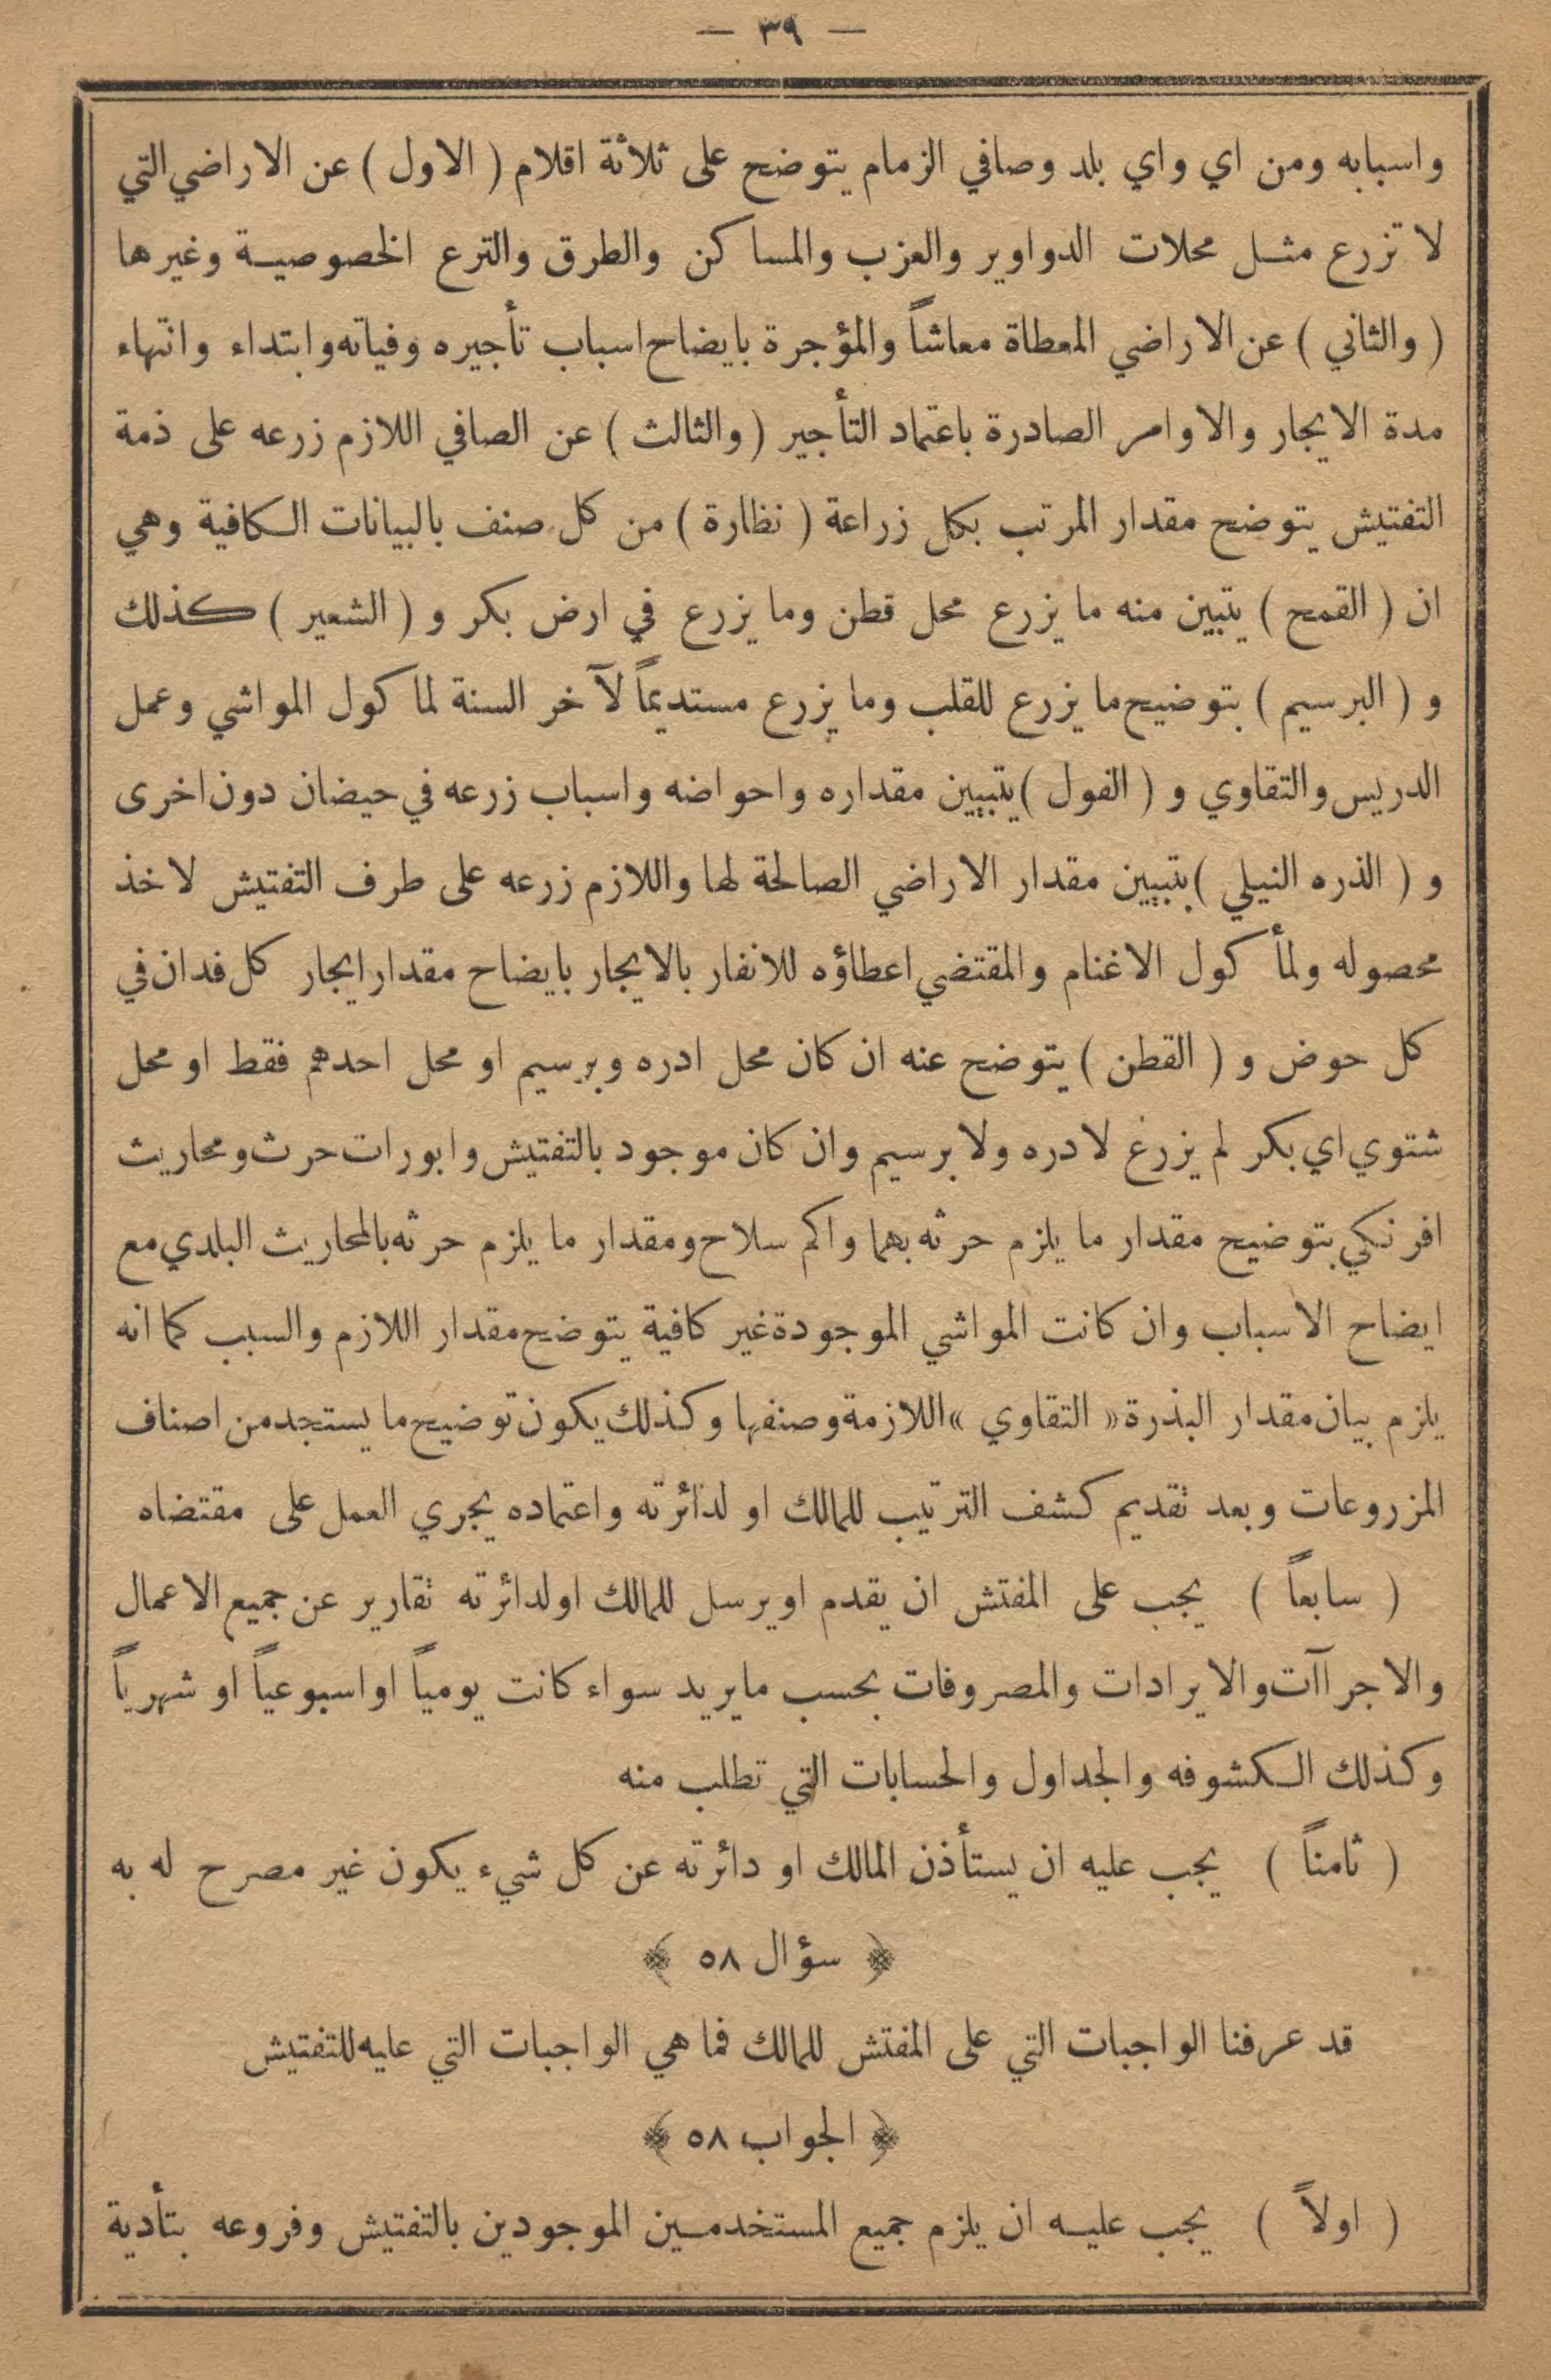 — ٣٩ —
واسبابه ومن اي واي بلد وصافي الزمام يتوضح على ثلاثة اقلام ( الاول ) عن الاراضي التي
لا تزرع مثل محلات الدواوير والعزب والمساكن والطرق والترع الخصوصية وغيرها
( والثاني ) عن الاراضي المعطاة معاشاً والمؤجرة بايضاح اسباب تأجيره وفياته وابتداء وانتهاء
مدة الايجار والاوامر الصادرة باعتماد التأجير ( والثالث ) عن الصافي اللازم زرعه على ذمة
التفتيش يتوضح مقدار المرتب بكل زراعة ( نظارة ) من كل صنف بالبيانات الكافية وهي
ان ( القمح ) يتبين منه ما يزرع محل قطن وما يزرع في ارض بكر و ( الشعير ) كذلك
و ( البرسيم ) بتوضيح ما يزرع للقلب وما يزرع مستديماً لآخر السنة لماكول المواشي وعمل
الدريس والتقاوي و ( الفول ) يتبيين مقداره واحواضه واسباب زرعه في حيضان دون اخرى
و ( الذره النيلي ) بتبيين مقدار الاراضي الصالحة لها واللازم زرعه على طرف التفتيش لاخذ
محصوله ولمأكول الاغنام والمقتضي اعطاؤه للانفار بالايجار بايضاح مقدار ايجار كل فدان في
كل حوض و ( القطن ) يتوضح عنه ان كان محل ادره وبرسيم او محل احدهم فقط او محل
شتوي اي بكر لم يزرع لادره ولا برسيم وان كان موجود بالتفتيش وابورات حرث ومحاريث
افرنكي بتوضيح مقدار ما يلزم حرثه بهما واكم سلاح ومقدار ما يلزم حرثه بالمحاريث البلدي مع
ايضاح الاسباب وان كانت المواشي الموجودة غير كافية يتوضح مقدار اللازم والسبب كما انه
يلزم بيان مقدار البذرة « التقاوي » اللازمة وصنفها وكذلك يكون توضيح ما يستجد من اصناف
المزروعات وبعد تقديم كشف الترتيب للمالك او لدائرته واعتماده يجري العمل على مقتضاه
( سابعاً ) يجب على المفتش ان يقدم او يرسل للمالك او لدائرته تقارير عن جميع الاعمال
والاجراآت والايرادات والمصروفات بحسب ما يريد سواء كانت يومياً او اسبوعياً او شهرياً
وكذلك الكشوفه والجداول والحسابات التي تطلب منه
( ثامناً ) يجب عليه ان يستأذن المالك او دائرته عن كل شيء يكون غير مصرح له به
﴿ سؤال ٥٨ ﴾
قد عرفنا الواجبات التي على المفتش للمالك فما هي الواجبات التي عليه للتفتيش
﴿ الجواب ٥٨ ﴾
( اولاً ) يجب عليه ان يلزم جميع المستخدمين الموجودين بالتفتيش وفروعه بتأدية